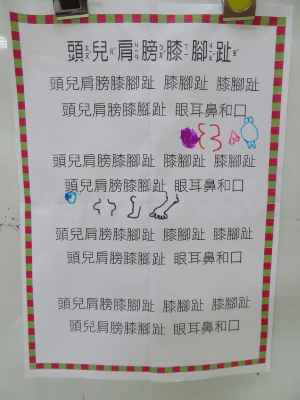 頭兒肩膀膝腳趾
頭兒肩膀膝腳趾 膝腳趾 膝腳趾
頭兒肩膀膝腳趾 眼耳鼻和口
頭兒肩膀膝腳趾 膝腳趾 膝腳趾
頭兒肩膀膝腳趾 眼耳鼻和口
頭兒肩膀膝腳趾 膝腳趾 膝腳趾
頭兒肩膀膝腳趾 眼耳鼻和口
頭兒肩膀膝腳趾 膝腳趾 膝腳趾
頭兒肩膀膝腳趾 眼耳鼻和口